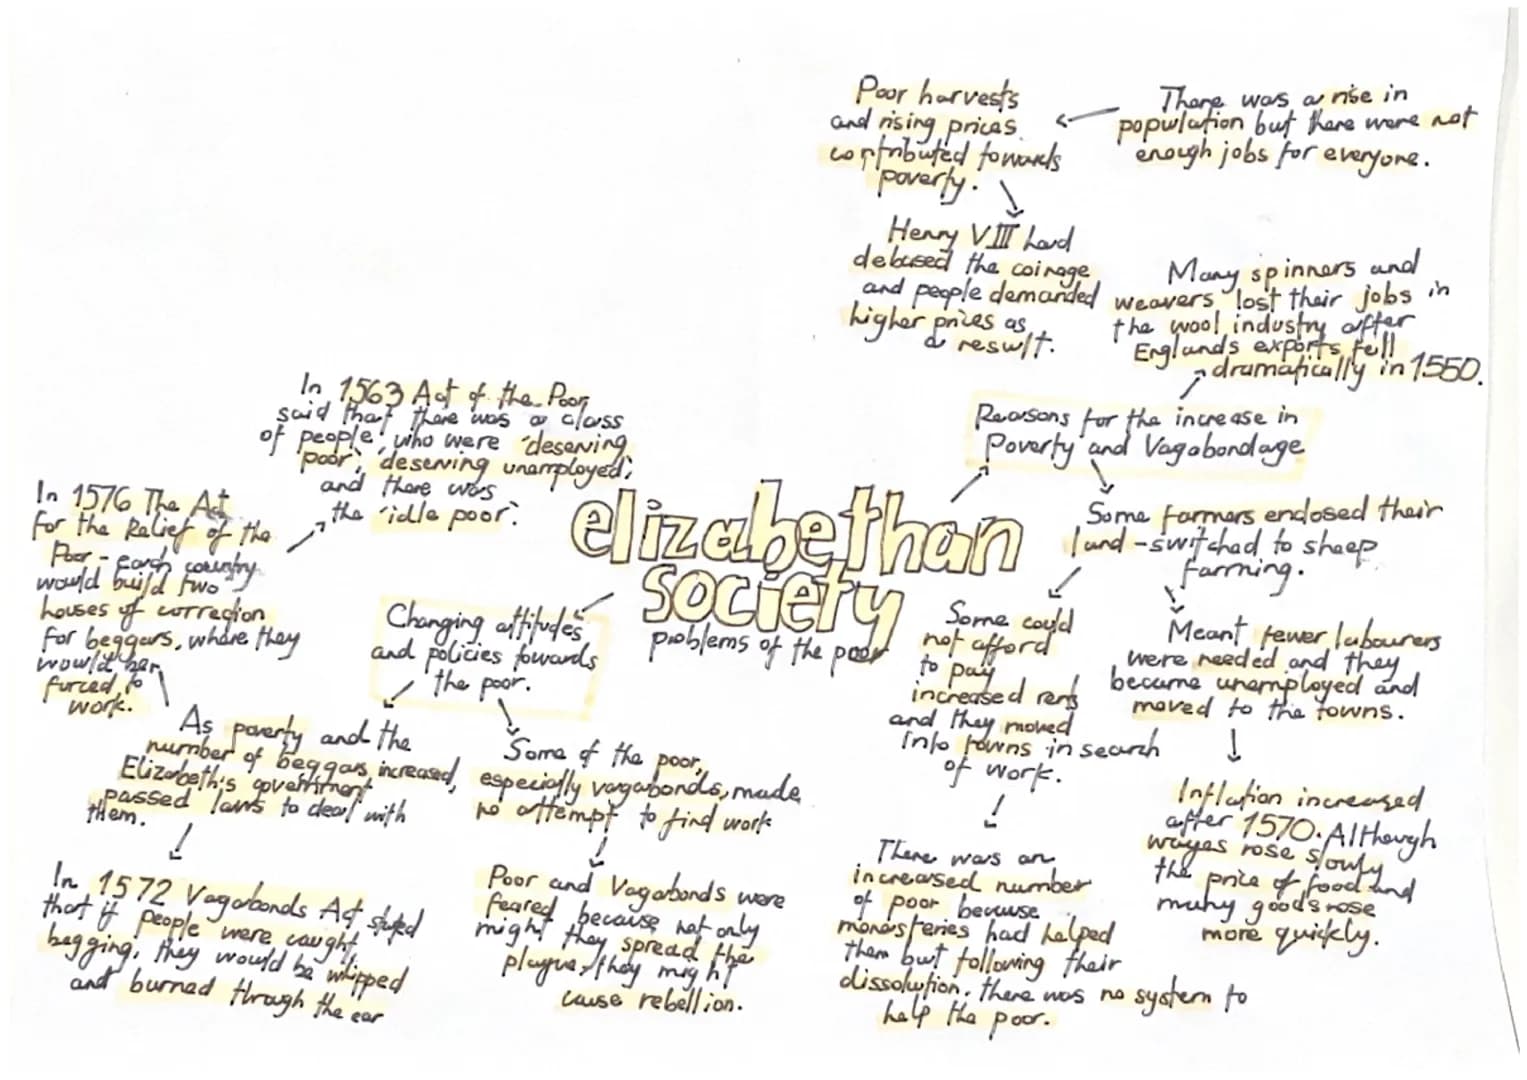 Poor harvests
and rising prices
contributed towards
poverty.
There was a rise in
population but there were not
enough jobs for everyone.
Henry VIII had
debased the coinage
and people demanded
higher prices as
a result.
Many spinners and
weavers lost their jobs in
the wool industry after
Englands exports fell
dramatically in 1550.
Reasons for the increase in
Poverty and Vagabondage
In 1563 Act of the Poor
said that there was a class
of people, who were 'deserving
poor', 'deserving unemployed',
and there was
the 'idle poor'.
In 1576 The Act
for the Relief of the
Poor - each country
would build two
houses of correction
for beggars, where they
would be
forced to
work.
elizabethan
society
problems of the poor
Changing attitudes
and policies towards
the poor.
Some farmers enclosed their
land - switched to sheep
farming.
Some could
not afford
to pay
increased rents
and they moved
into towns in search
of work.
Meant fewer labourers
were needed and they
became unemployed and
moved to the towns.
As poverty and the
number of beggars increased,
Elizabeth's government
passed laws to deal with
them.
Some of the poor,
especially vagabonds, made
no attempt to find work
Inflation increased
after 1570. Although
wages rose slowly
the price of food and
many goods rose
more quickly.
In 1572 Vagabonds Act stated
that if people were caught
begging, they would be whipped
and burned through the ear
Poor and Vagabonds were
feared because not only
might they spread the
plague, they might
cause rebellion.
There was an
increased number
of poor because
monasteries had helped
them but following their
dissolution, there was no system to
help the poor.